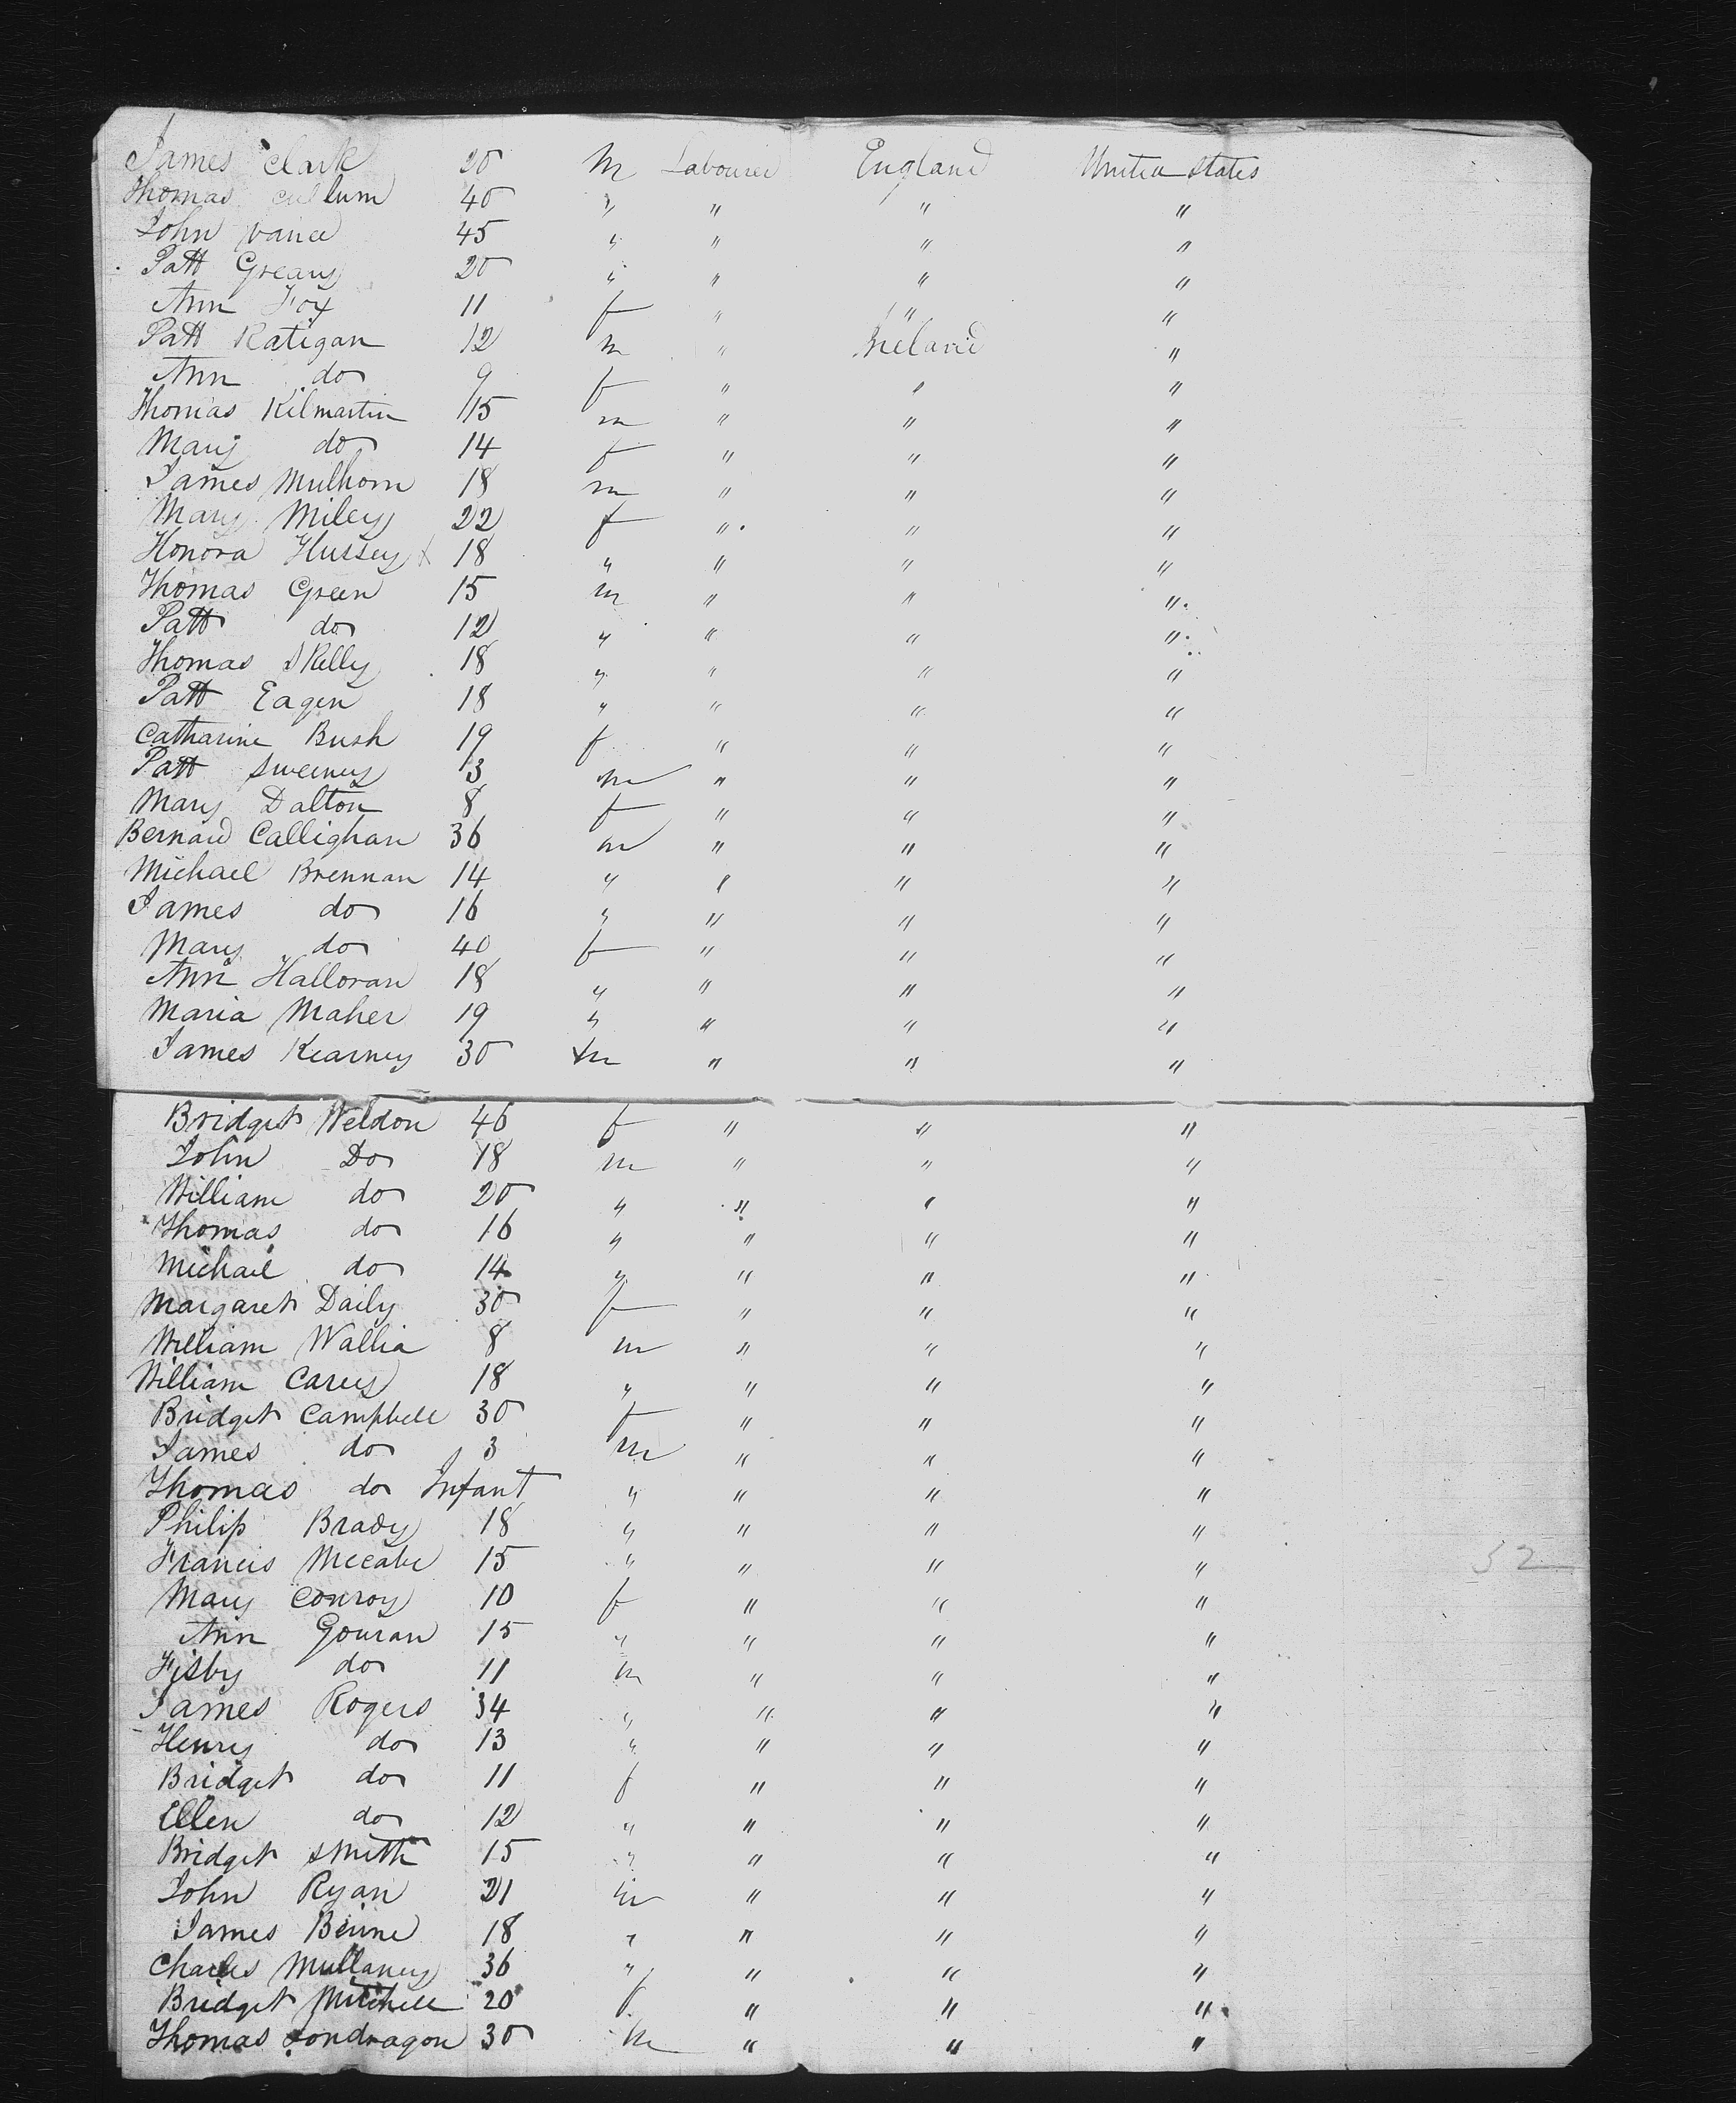 James Clark 20 M Labourer England United States
Thomas Cullum 40 " " " "
John Vance 45 " " " "
Patt Greany 20 " " " "
Ann Fox 11 f " " "
Patt Ratigan 12 m " Ireland "
Ann do 9 f " " "
Thomas Kilmartin 15 m " " "
Mary do 14 f " " "
James Mulhorn 18 m " " "
Mary Miley 22 f " " "
Honora Hussey x 18 " " " "
Thomas Green 15 m " " "
Patt do 12 " " " "
Thomas Skelly 18 " " " "
Patt Eagen 18 " " " "
Catharine Bush 19 f " " "
Patt Sweeney 13 m " " "
Mary Dalton 8 f " " "
Bernard Callighan 36 m " " "
Michael Brennan 14 " " " "
James do 16 " " " "
Mary do 40 f " " "
Ann Halloran 18 " " " "
Maria Maher 19 " " " "
James Kearney 30 m " " "
Bridget Weldon 46 f " " "
John Do 18 m " " "
William do 20 " " " "
Thomas do 16 " " " "
Michael do 14 " " " "
Margaret Daily 30 f " " "
William Wallia 8 m " " "
William Carey 18 " " " "
Bridget Campbell 30 f " " "
James do 3 m " " "
Thomas do Infant " " " "
Philip Brady 18 " " " "
Francis Mccabe 15 " " " "
52
Mary Conroy 10 f " " "
Ann Gouran 15 " " " "
do 11 m " " "
James Rogers 34 " " " "
Henry do 13 " " " "
Bridget do 11 f " " "
Ellen do 12 " " " "
Bridget Smith 15 " " " "
John Ryan 21 m " " "
James Beirne 18 " " " "
Charles Mullaney 36 " " " "
Bridget Mitchell 20 f " " "
Thomas 30 m " " "